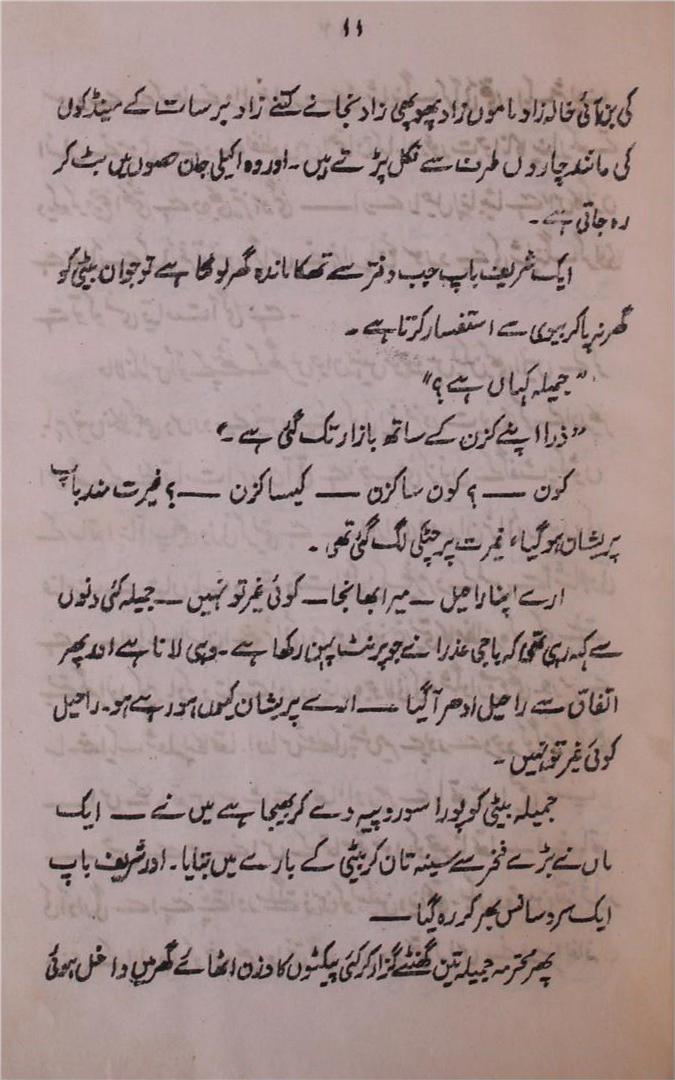 ۱۱
کی بن آئی خالہ زاد ماموں زاد پھوپھی زاد نجانے کتنے زاد برسات کے مینڈکوں
کی مانند چاروں طرف سے نکل پڑتے ہیں۔ اور وہ اکیلی جان حصوں میں بٹ کر
رہ جاتی ہے۔
ایک شریف باپ جب دفتر سے تھکا ماندہ گھر لوٹتا ہے تو جوان بیٹی کو
گھر نہ پا کر بیوی سے استفسار کرتا ہے۔
"جمیلہ کہاں ہے؟"
"ذرا اپنے کزن کے ساتھ بازار تک گئی ہے۔"
کون — ؟ کون سا کزن — کیسا کزن — ؟ غیرت مند باپ
پریشان ہو گیا، غیرت پر چٹکی لگ گئی تھی۔
ارے اپنا راحیل — میرا بھانجا — کوئی غیر تو نہیں — جمیلہ کئی دنوں
سے کہہ رہی تھی کہ باجی عذرا نے جو پرنٹ پہن رکھا ہے۔ وہی لانا ہے اور پھر
اتفاق سے راحیل ادھر آ گیا — ارے پریشان کیوں ہو رہے ہو۔ راحیل
کوئی غیر تو نہیں۔
جمیلہ بیٹی کو پورا سو روپیہ دے کر بھیجا ہے میں نے — ایک
ماں نے بڑے فخر سے سینہ تان کر بیٹی کے بارے میں بتایا۔ اور شریف باپ
ایک سرد سانس بھر کر رہ گیا —
پھر محترمہ جمیلہ تین گھنٹے گزار کر کئی پیکٹوں کا وزن اٹھائے گھر میں داخل ہوئی